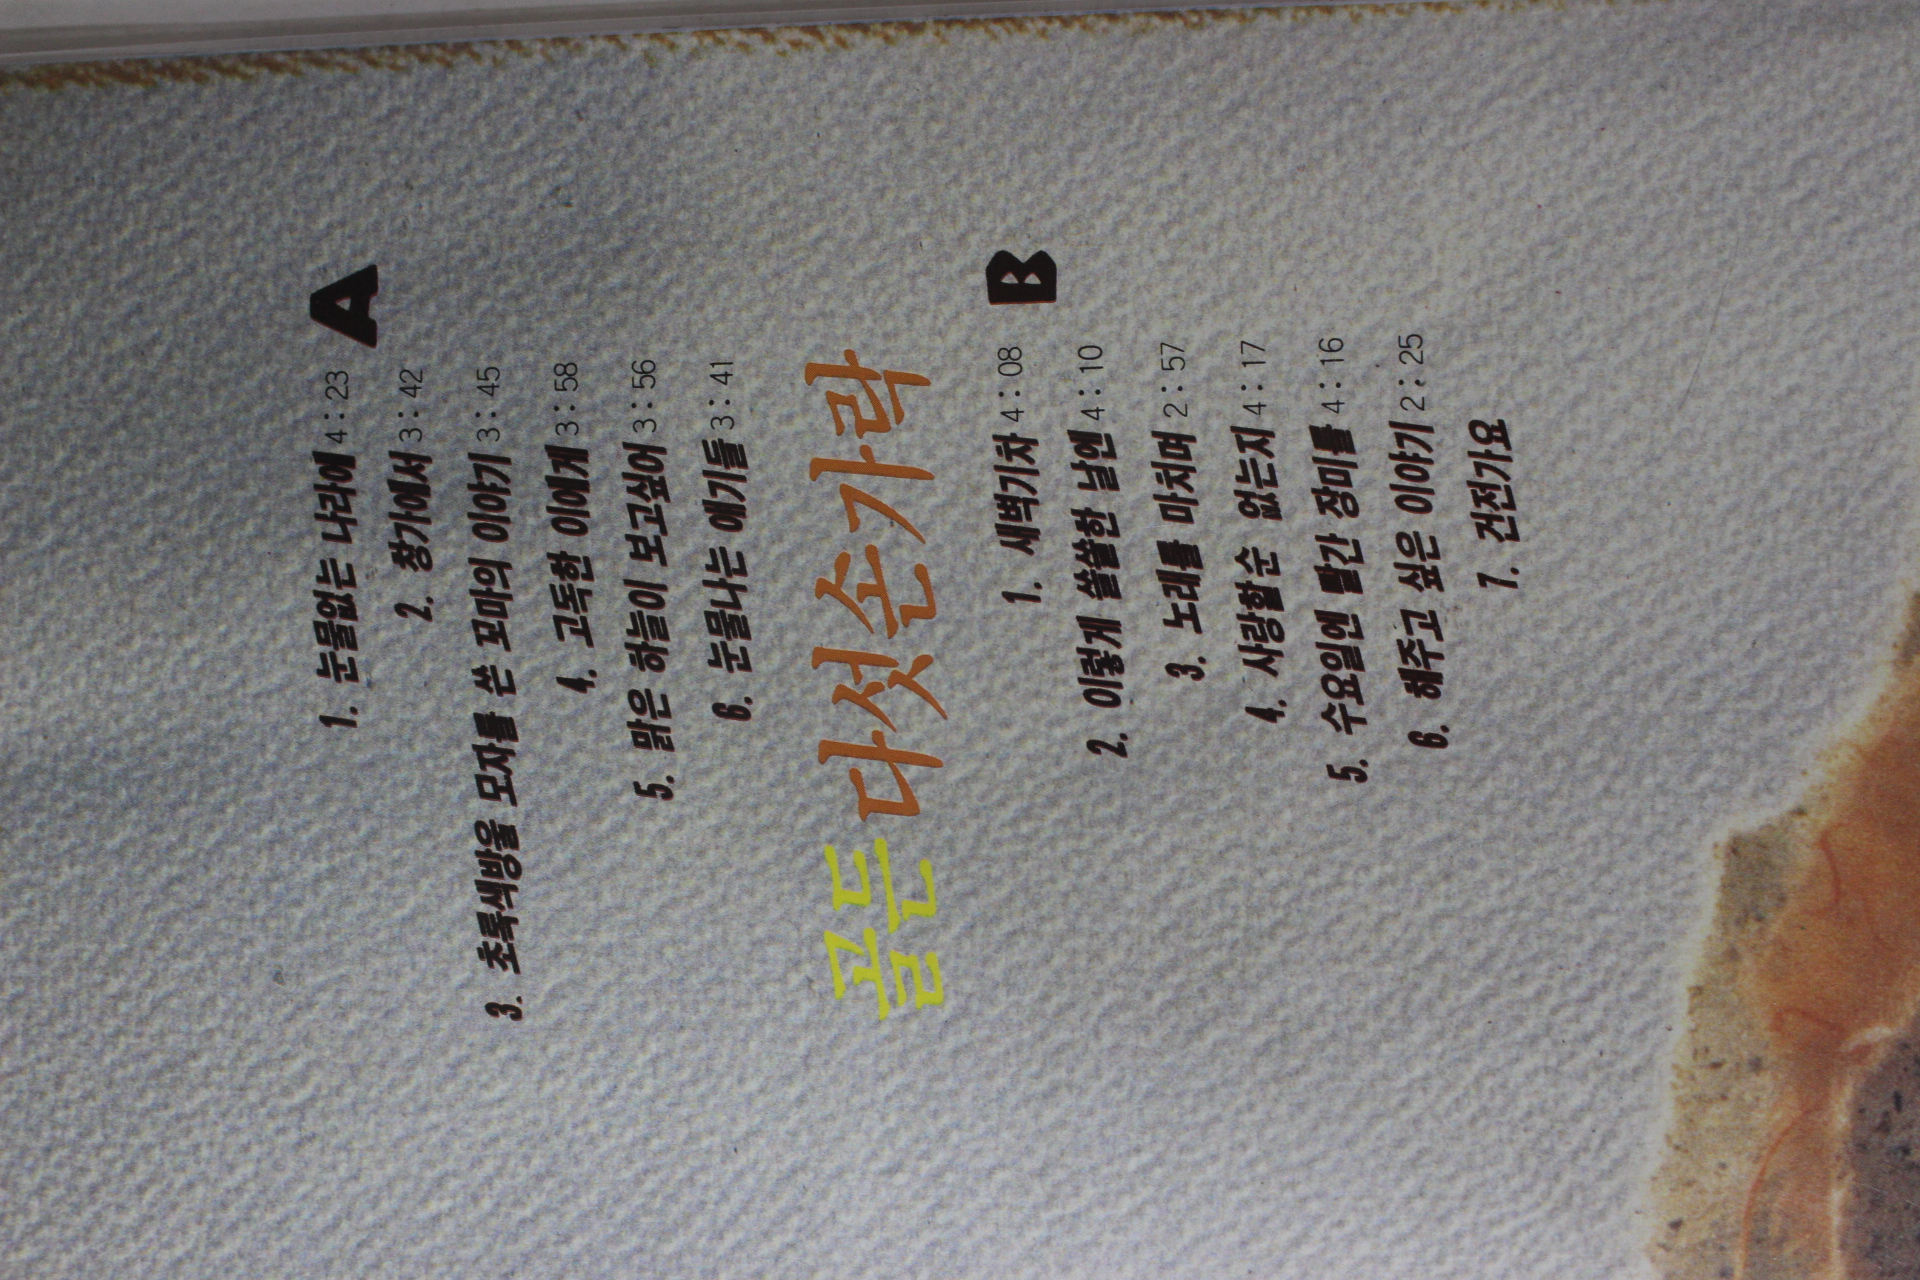 A
1. 눈물없는 나라에 4:23
2. 창가에서 3:42
3. 초록색방울 모자를 쓴 꼬마의 이야기 3:45
4. 고독한 이에게 3:58
5. 맑은 하늘이 보고싶어 3:56
6. 눈물나는 얘기들 3:41
골든 다섯손가락
B
1. 새벽기차 4:08
2. 이렇게 쓸쓸한 날엔 4:10
3. 노래를 마치며 2:57
4. 사랑할순 없는지 4:17
5. 수요일엔 빨간 장미를 4:16
6. 해주고 싶은 이야기 2:25
7. 건전가요